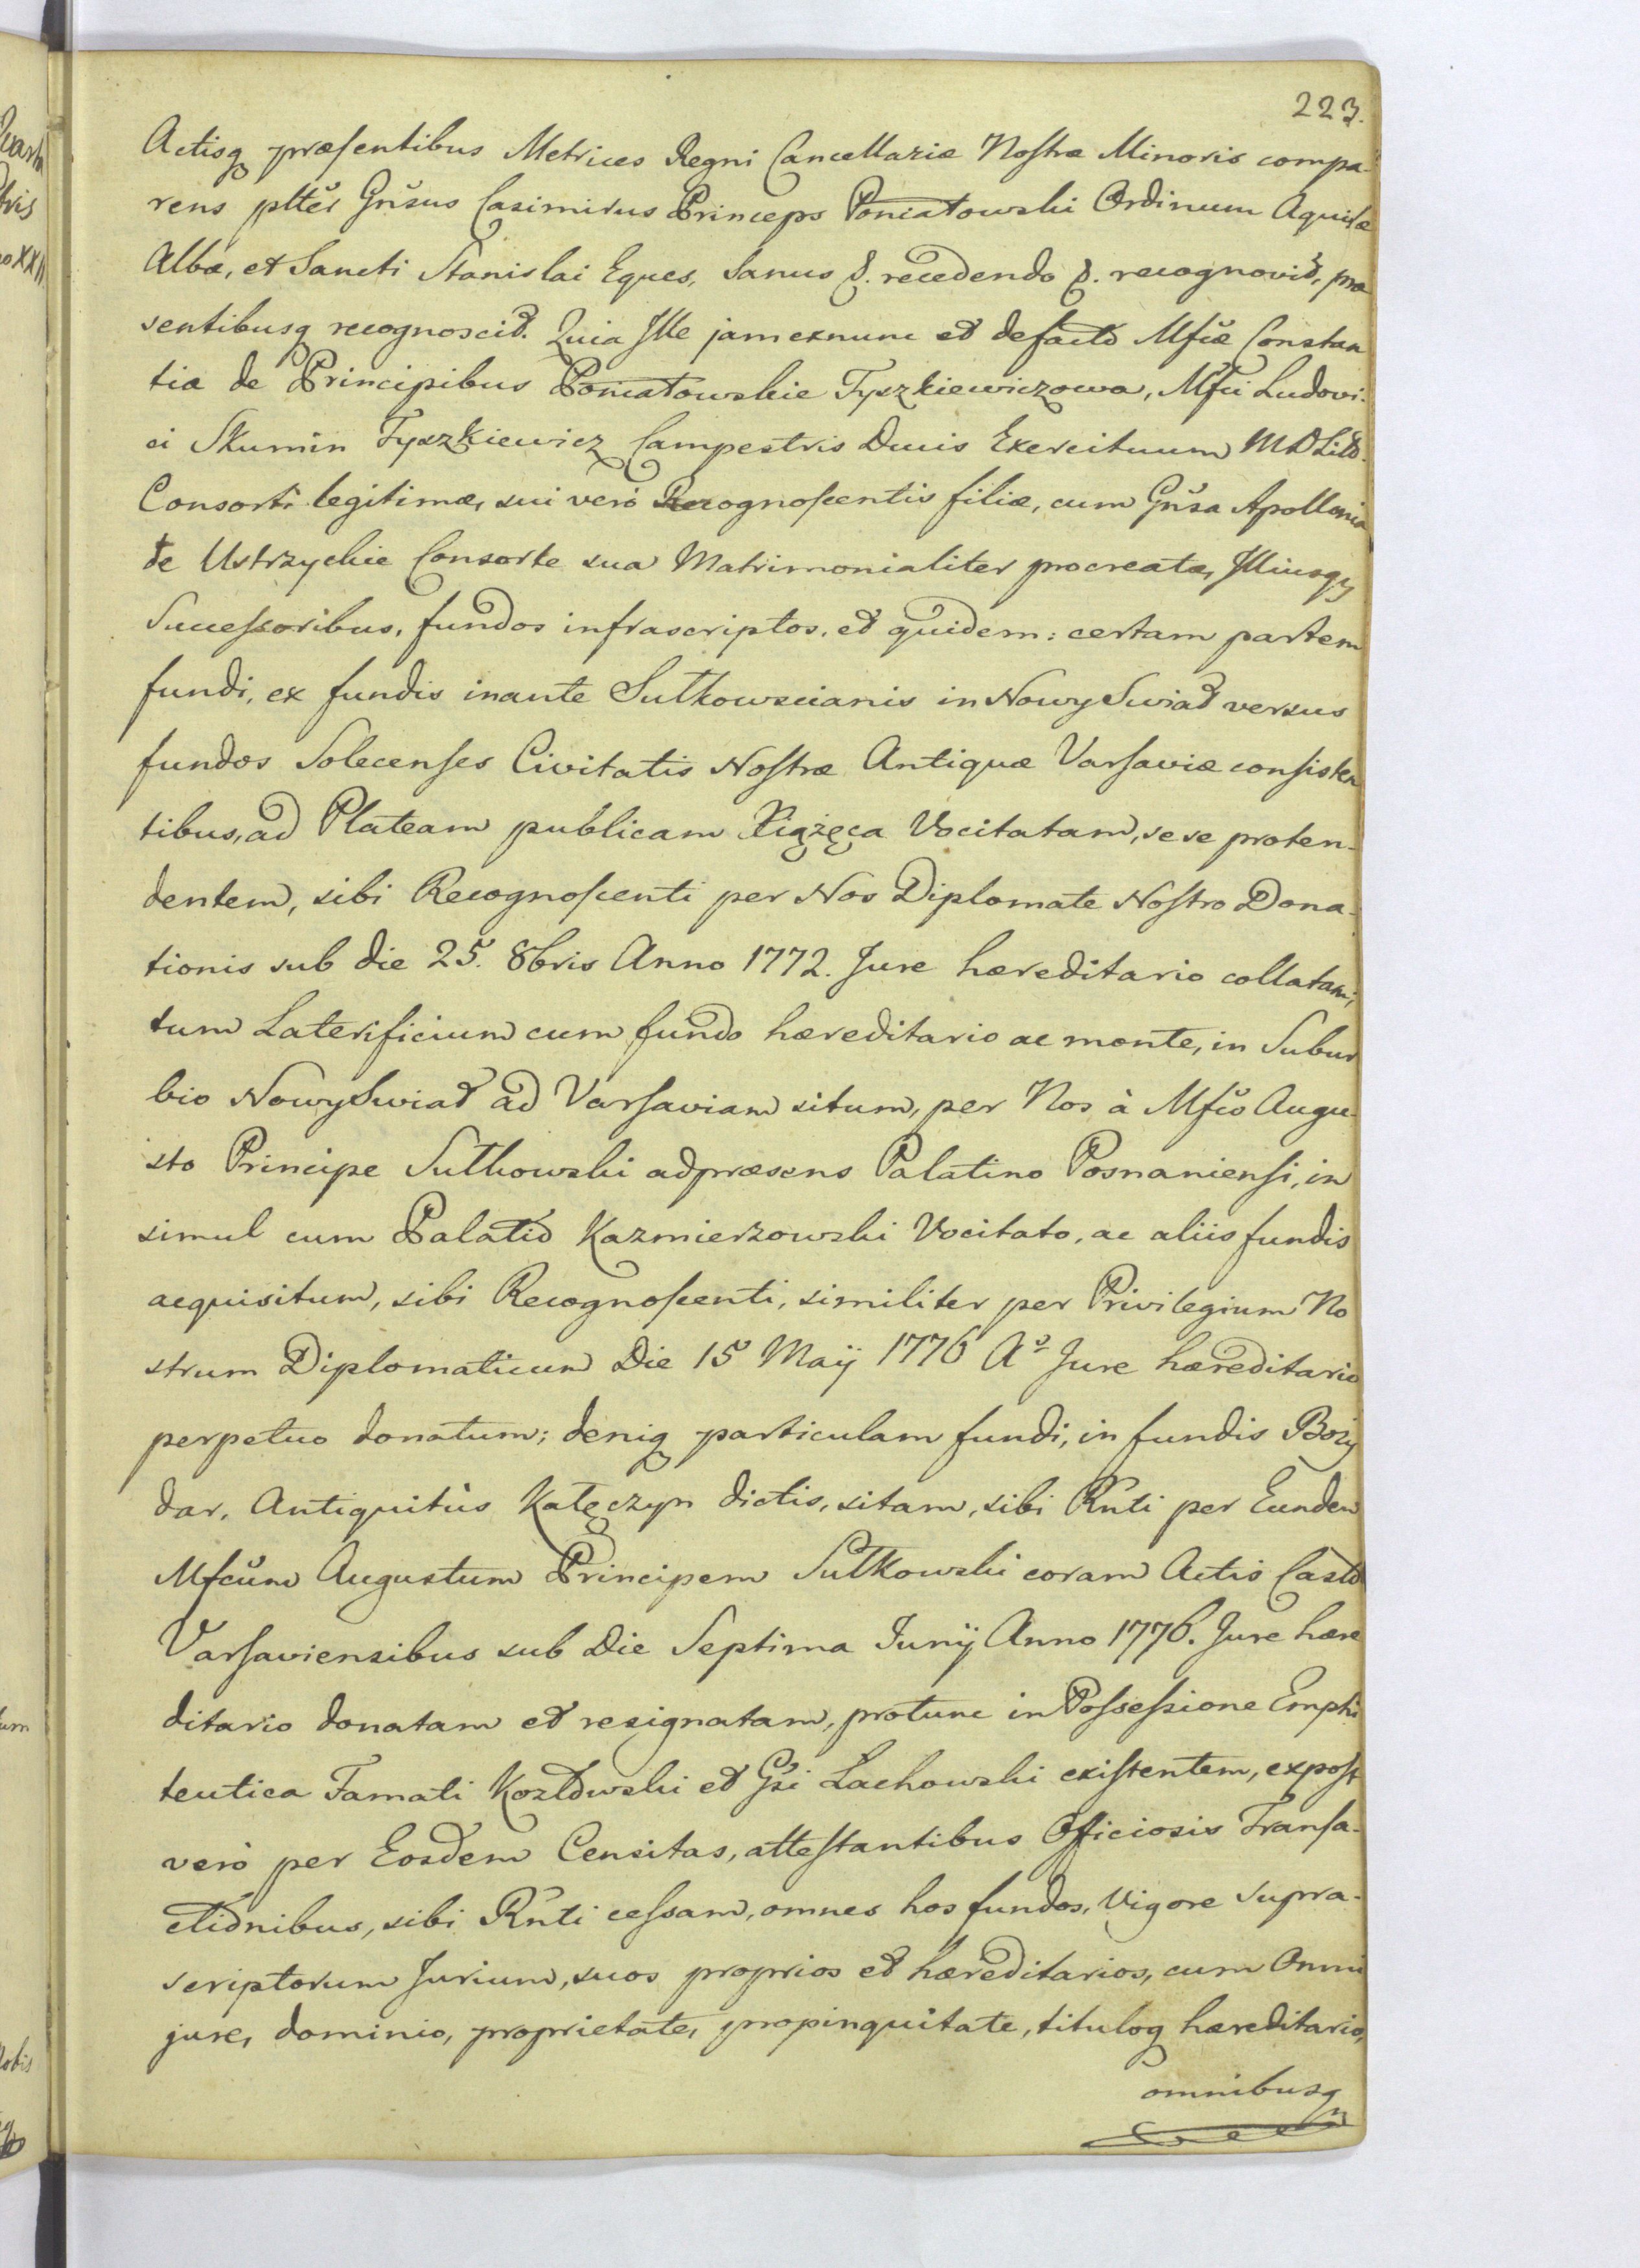 223.
Actisq præsentibus Metrices Regni Cancellariæ Nostræ Minoris compa-
rens pltĕr Gnšus Casimirus Princeps Poniatowski Ordinum Aquilæ
Albæ, et Sancti Stanislai Eques, Sanus &. recedendo &. recognovit, præ
sentibusq recognoscit. Quia Ille jamexnunc et defacto Mfcæ Constan
tiæ de Principibus Poniatowskie Tyszkiewiczowa, Mfci Ludovi-
ci Skumin Tyszkiewicz Campestris Ducis Exercituum MDLitt.
Consorti legitimæ, sui verò Recognoscentis filiæ, cum Gnsa Apollonia
de Ustrzyckie Consorte sua Matrimonialiter procreatæ, Illiusq
Successoribus, fundos infrascriptos, et quidem: certam partem
fundi, ex fundis inante Sułkowscianis in Nowy Swiat versus
fundos Solecenses Civitatis Nostræ Antiquæ Varsaviæ consisten
tibus, ad Plateam publicam Xiążęca Vocitatam, sese proten-
dentem, sibi Recognoscenti per Nos Diplomate Nostro Dona-
tionis sub die 25. 8bris Anno 1772. Jure hæreditario collatam;
tum Laterificium cum fundo hæreditario ac monte, in Subur
bio Nowy Swiat ad Varsaviam situm, per Nos à Mfco Augu-
sto Principe Sułkowski adpræsens Palatino Posnaniensi, in
simul cum Palatio Kazmierzowski Vocitato, ac aliis fundis
acquisitum, sibi Recognoscenti, similiter per Privilegium No
strum Diplomaticum Die 15 Maij 1776 Aº Jure hæreditario
perpetuo donatum; deniq particulam fundi, in fundis Boży
dar, Antiquitùs Kałęczyn dictis, sitam, sibi Rnti per Eundem
Mfcum Augustum Principem Sułkowski coram Actis Castr
Varsaviensibus sub Die Septima Junij Anno 1776. Jure hære
ditario donatam et resignatam, protunc in Possessione Emphi
teutica Famati Kozłowski et Gsi Lachowski existentem, expost
verò per Eosdem Censitas, attestantibus Officiosis Transa-
ctionibus, sibi Rnti cessam, omnes hos fundos, Vigore supra-
scriptorum Jurium, suos proprios et hæreditarios, cum Omni
jure, dominio, proprietate, propinquitate, tituloq hæreditario,
omnibusq